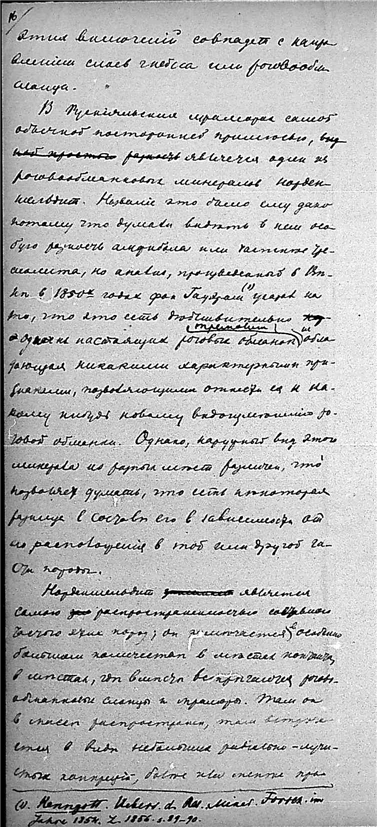 16/
этих включений совпадет с направ-
лением слоев гнейса или роговообм.
сланца.
В Рускіяльских мраморах самой
обычной посторонней примесью,
является один из
роговообманковых минералов норден-
шильдит. Название это было ему дано
потому что думали видеть в нем осо-
бую разность амфибола или
но анализ, произведенный в
в 1850х годах фон Гауэром (1) указал на
то, что это есть действительно
одна из настоящих роговых обманок, не обла-
дающая никакими характерными при-
знаками, позволяющими отнести ее к ка-
кому нибудь новому видоизменению ро-
говой обманки. Однако, наружный вид этого
минерала из разных мест различен, что
позволяет думать, что есть некоторая
разница в составе его в зависимости от
его расположения в той или другой ча-
сти породы.
Норденшильдит является
самою распространенностью
он встречается в особенно
большом количестве в местах контакта,
в местах, где вместе встречаются рогово-
обманковые сланцы и мраморы. Там он
в массе распространен, там встреча-
ется в виде небольших радиально-лучи-
стых конкреций, более или менее пра-
(1). Kenngott. Uebers. d. Res. Miner. Forsch. im
Jahre 1854. L. 1856. s. 89-90.